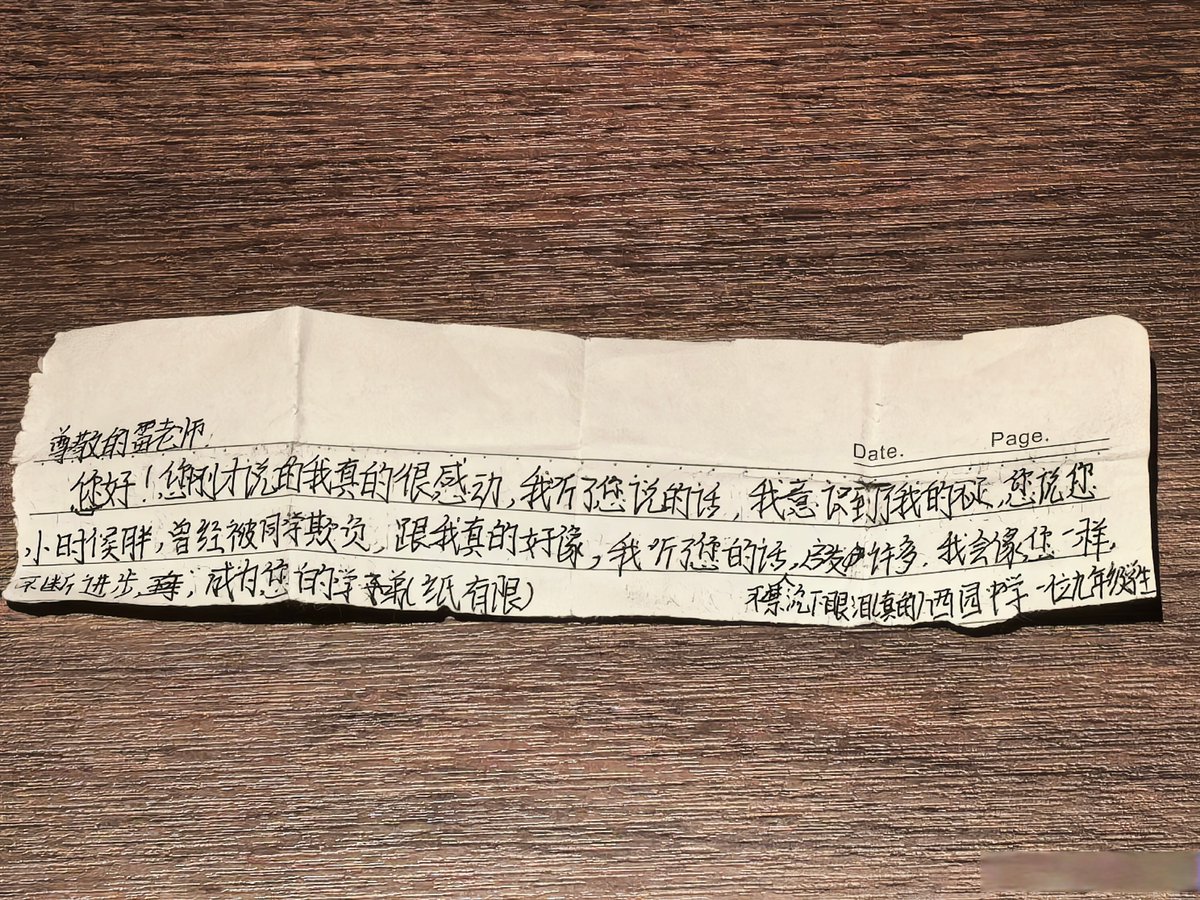 尊敬的雷老师
Date. Page.
您好！您刚才说的我真的很感动，我听了您说的话，我意识到了我的不足，您说您
小时候胖，曾经被同学欺负，跟我真的好像，我听了您的话，许多．我会像您一样，
不断进步，成为您的学（纸有限）
不禁流下眼泪（真的）西园中学一位九年级学生